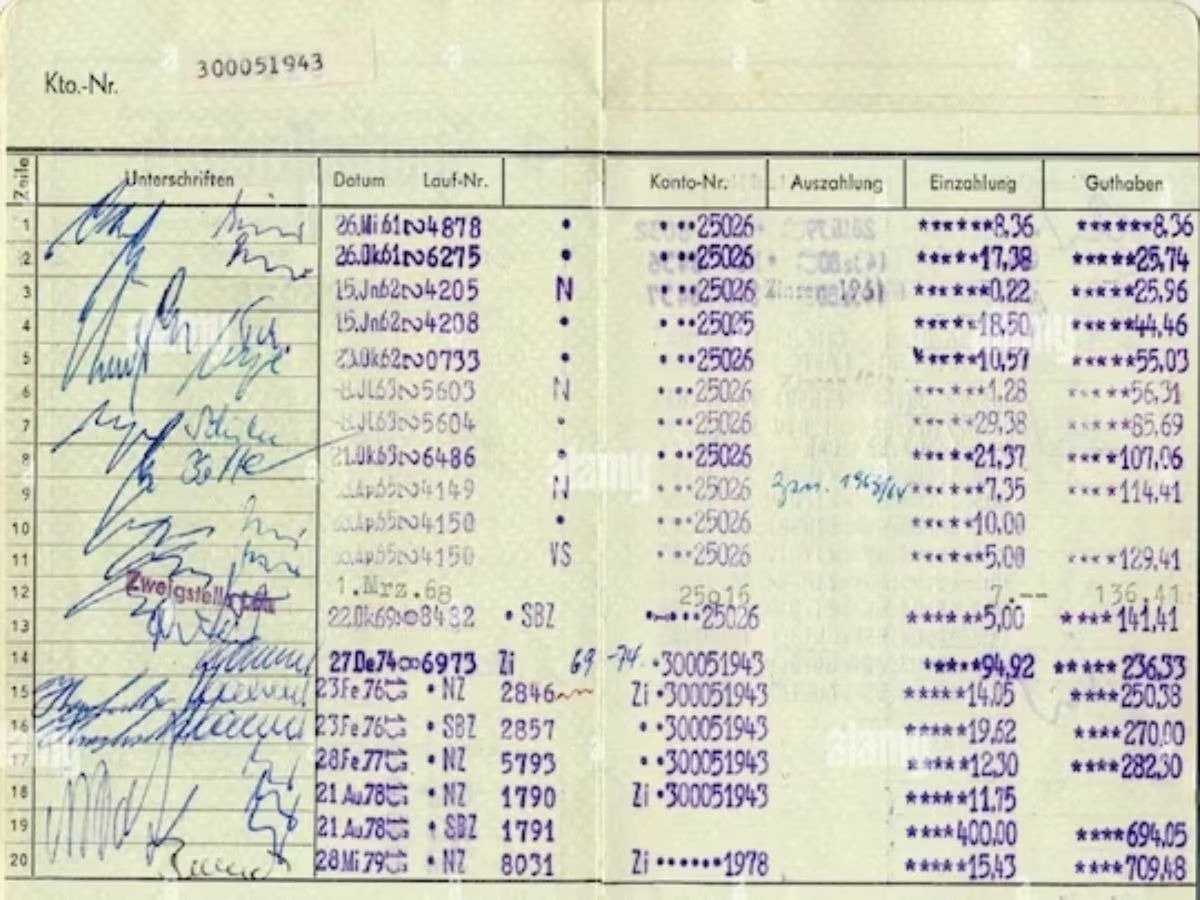 Kto.-Nr. 300051943
Zeile Unterschriften Datum Lauf-Nr. Konto-Nr. Auszahlung Einzahlung Guthaben
1 26.Mi 61 4878 • • ••25026 ******8,36 ******8,36
2 26.Ok61 6275 • • ••25026 *****17,38 *****25,74
3 15.Jn62 4205 N • ••25026 ******0,22 *****25,96
4 15.Jn62 4208 • • ••25025 *****18,50 *****44,46
5 23.Ok62 0733 • • ••25026 *****10,57 *****55,03
6 8.Jl63 5603 N • ••25026 ******1,28 *****56,31
7 8.Jl63 5604 • • ••25026 *****29,38 *****85,69
8 21.Ok63 6486 • • ••25026 *****21,37 ****107,06
9 Ap65 4149 N • ••25026 ******7,35 ****114,41
10 Ap65 4150 • • ••25026 *****10,00
11 Ap65 4150 VS • ••25026 ******5,00 ****129,41
12 Zweigstelle 1. Mrz. 68 25o16 7.-- 136,41
13 22.Ok69 8482 • SBZ 25026 ******5,00 ****141,41
14 27.De74 6973 Zi 69 -74. ••300051943 *****94,92 *****236,33
15 23Fe76 • NZ 2846 Zi •300051943 *****14.05 ****250,38
16 23Fe76 • SBZ 2857 ••300051943 *****19,62 ****270,00
17 28Fe77 • NZ 5793 ••300051943 *****12,30 ****282,30
18 21Au78 • NZ 1790 Zi •300051943 *****11,75
19 21Au78 • SBZ 1791 ****400,00 ****694,05
20 28Mi79 • NZ 8031 Zi ••••••1978 *****15,43 ****709,48
alamy